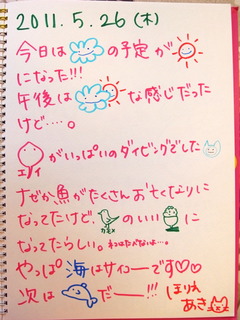 2011.5.26(木)
今日は の予定が
になった!!!
午後は な感じだった
けど‥‥。
エイ がいっぱいのダイビングでした
ナゼか魚がたくさんお亡くなりに
なってたけど、 のいい に
カモメ
なってたらしい。ネコはたべないよ…。
やっぱ海はサイコーです♡♡
次は だー!!!
ほりえ
あき